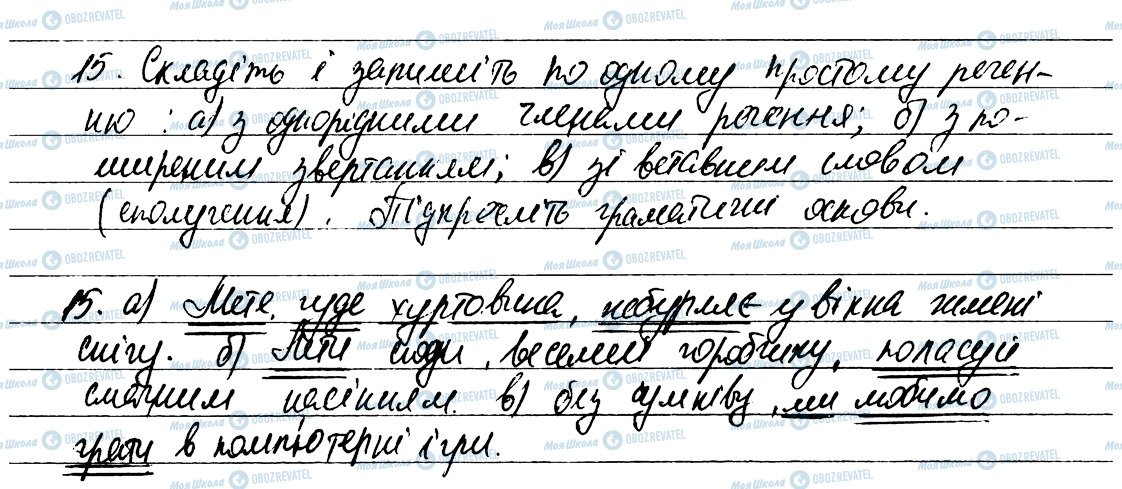 15. Складіть і запишіть по одному простому речен-
ню : а) з однорідними членами речення; б) з по-
ширеним звертанням; в) зі вставним словом
(сполученням). Підкресліть граматичні основи.
15. а) Мете, гуде хуртовина, жбурляє у вікна жмені
снігу. б) Лети сюди, веселий горобчику, поласуй
смачним насінням. в) без сумніву, ми любимо
грати в комп'ютерні ігри.